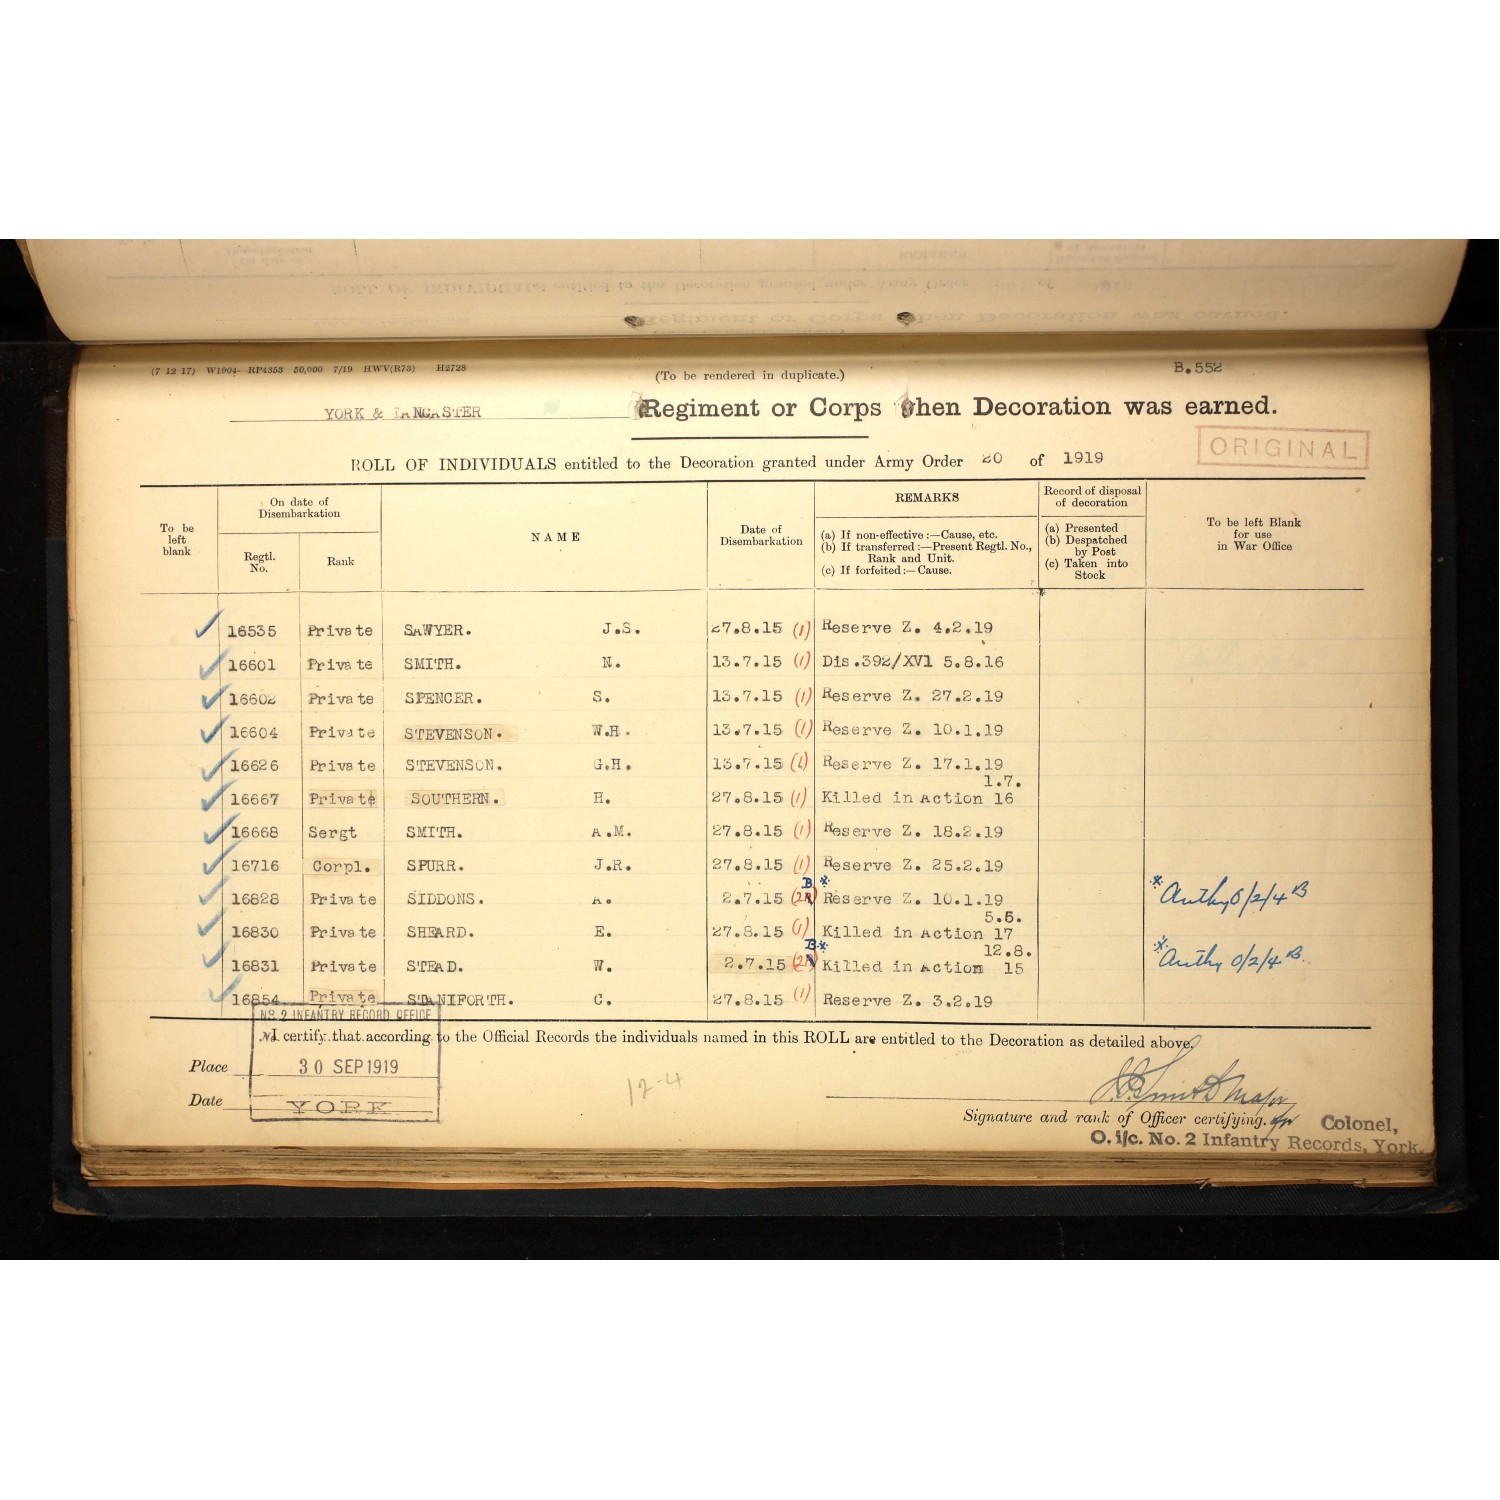 (7 12 17) W1904—RP4353 50,000 7/19 HWV(R73) H2728
(To be rendered in duplicate.)
B.552
YORK & LANCASTER Regiment or Corps when Decoration was earned.
ORIGINAL
ROLL OF INDIVIDUALS entitled to the Decoration granted under Army Order 20 of 1919
To be left blank
On date of Disembarkation
Regtl. No.
Rank
NAME
Date of Disembarkation
REMARKS
(a) If non-effective:—Cause, etc.
(b) If transferred:—Present Regtl. No., Rank and Unit.
(c) If forfeited:—Cause.
Record of disposal of decoration
(a) Presented
(b) Despatched by Post
(c) Taken into Stock
To be left Blank for use in War Office
16535 Private SAWYER. J.S. 27.8.15 (1) Reserve Z. 4.2.19
16601 Private SMITH. N. 13.7.15 (1) Dis.392/XV1 5.8.16
16602 Private SPENCER. S. 13.7.15 (1) Reserve Z. 27.2.19
16604 Private STEVENSON. W.H. 13.7.15 (1) Reserve Z. 10.1.19
16626 Private STEVENSON. G.H. 13.7.15 (1) Reserve Z. 17.1.19
16667 Private SOUTHERN. H. 27.8.15 (1) Killed in Action 1.7.16
16668 Sergt SMITH. A.M. 27.8.15 (1) Reserve Z. 18.2.19
16716 Corpl. SPURR. J.R. 27.8.15 (1) Reserve Z. 25.2.19
16828 Private SIDDONS. A. 2.7.15 B * Reserve Z. 10.1.19 * Authy 0/2/4 B
16830 Private SHEARD. E. 27.8.15 (1) Killed in Action 5.5.17
16831 Private STEAD. W. 2.7.15 B * Killed in Action 12.8.15 * Authy 0/2/4 B.
16854 Private STANIFORTH. C. 27.8.15 (1) Reserve Z. 3.2.19
No. 2 INFANTRY RECORD OFFICE
I certify that according to the Official Records the individuals named in this ROLL are entitled to the Decoration as detailed above.
Place
30 SEP 1919
Date
YORK
12-4
Smith Major
Signature and rank of Officer certifying. for Colonel,
O. i/c. No. 2 Infantry Records, York.